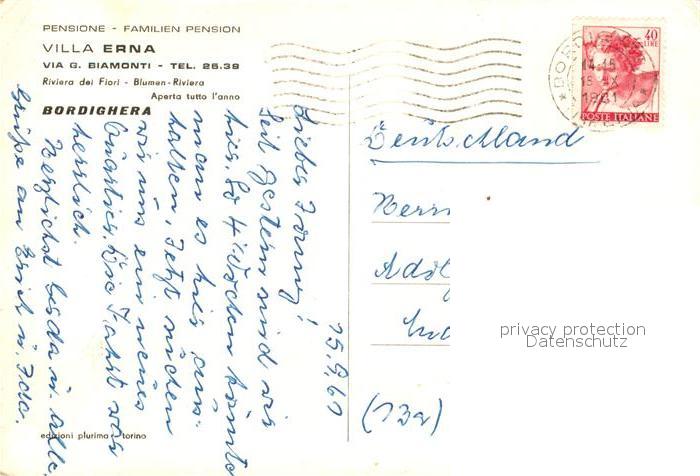 PENSIONE - FAMILIEN PENSION
VILLA ERNA
VIA G. BIAMONTI - TEL. 26.39
Riviera dei Fiori - Blumen-Riviera
Aperta tutto l'anno
BORDIGHERA
15.9.61
Liebes
Seit gestern sind wir
hier. So 4 Wochen könnte
man es hier aus-
halten. Jetzt suchen
wir uns ein neues
Quartier. Die Fahrt war
herrlich.
Herzlichst Gerda u. alle.
Grüße an Emil u. Ida.
edizioni plurima - torino
40
LIRE
POSTE ITALIANE
14-15
15 IX
1961
Deutschland
Herrn
Adol
(13a)
privacy protection
Datenschutz